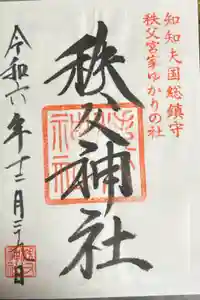 知知夫国総鎮守
秩父宮家ゆかりの社
秩父神社
令和六年十二月三十日